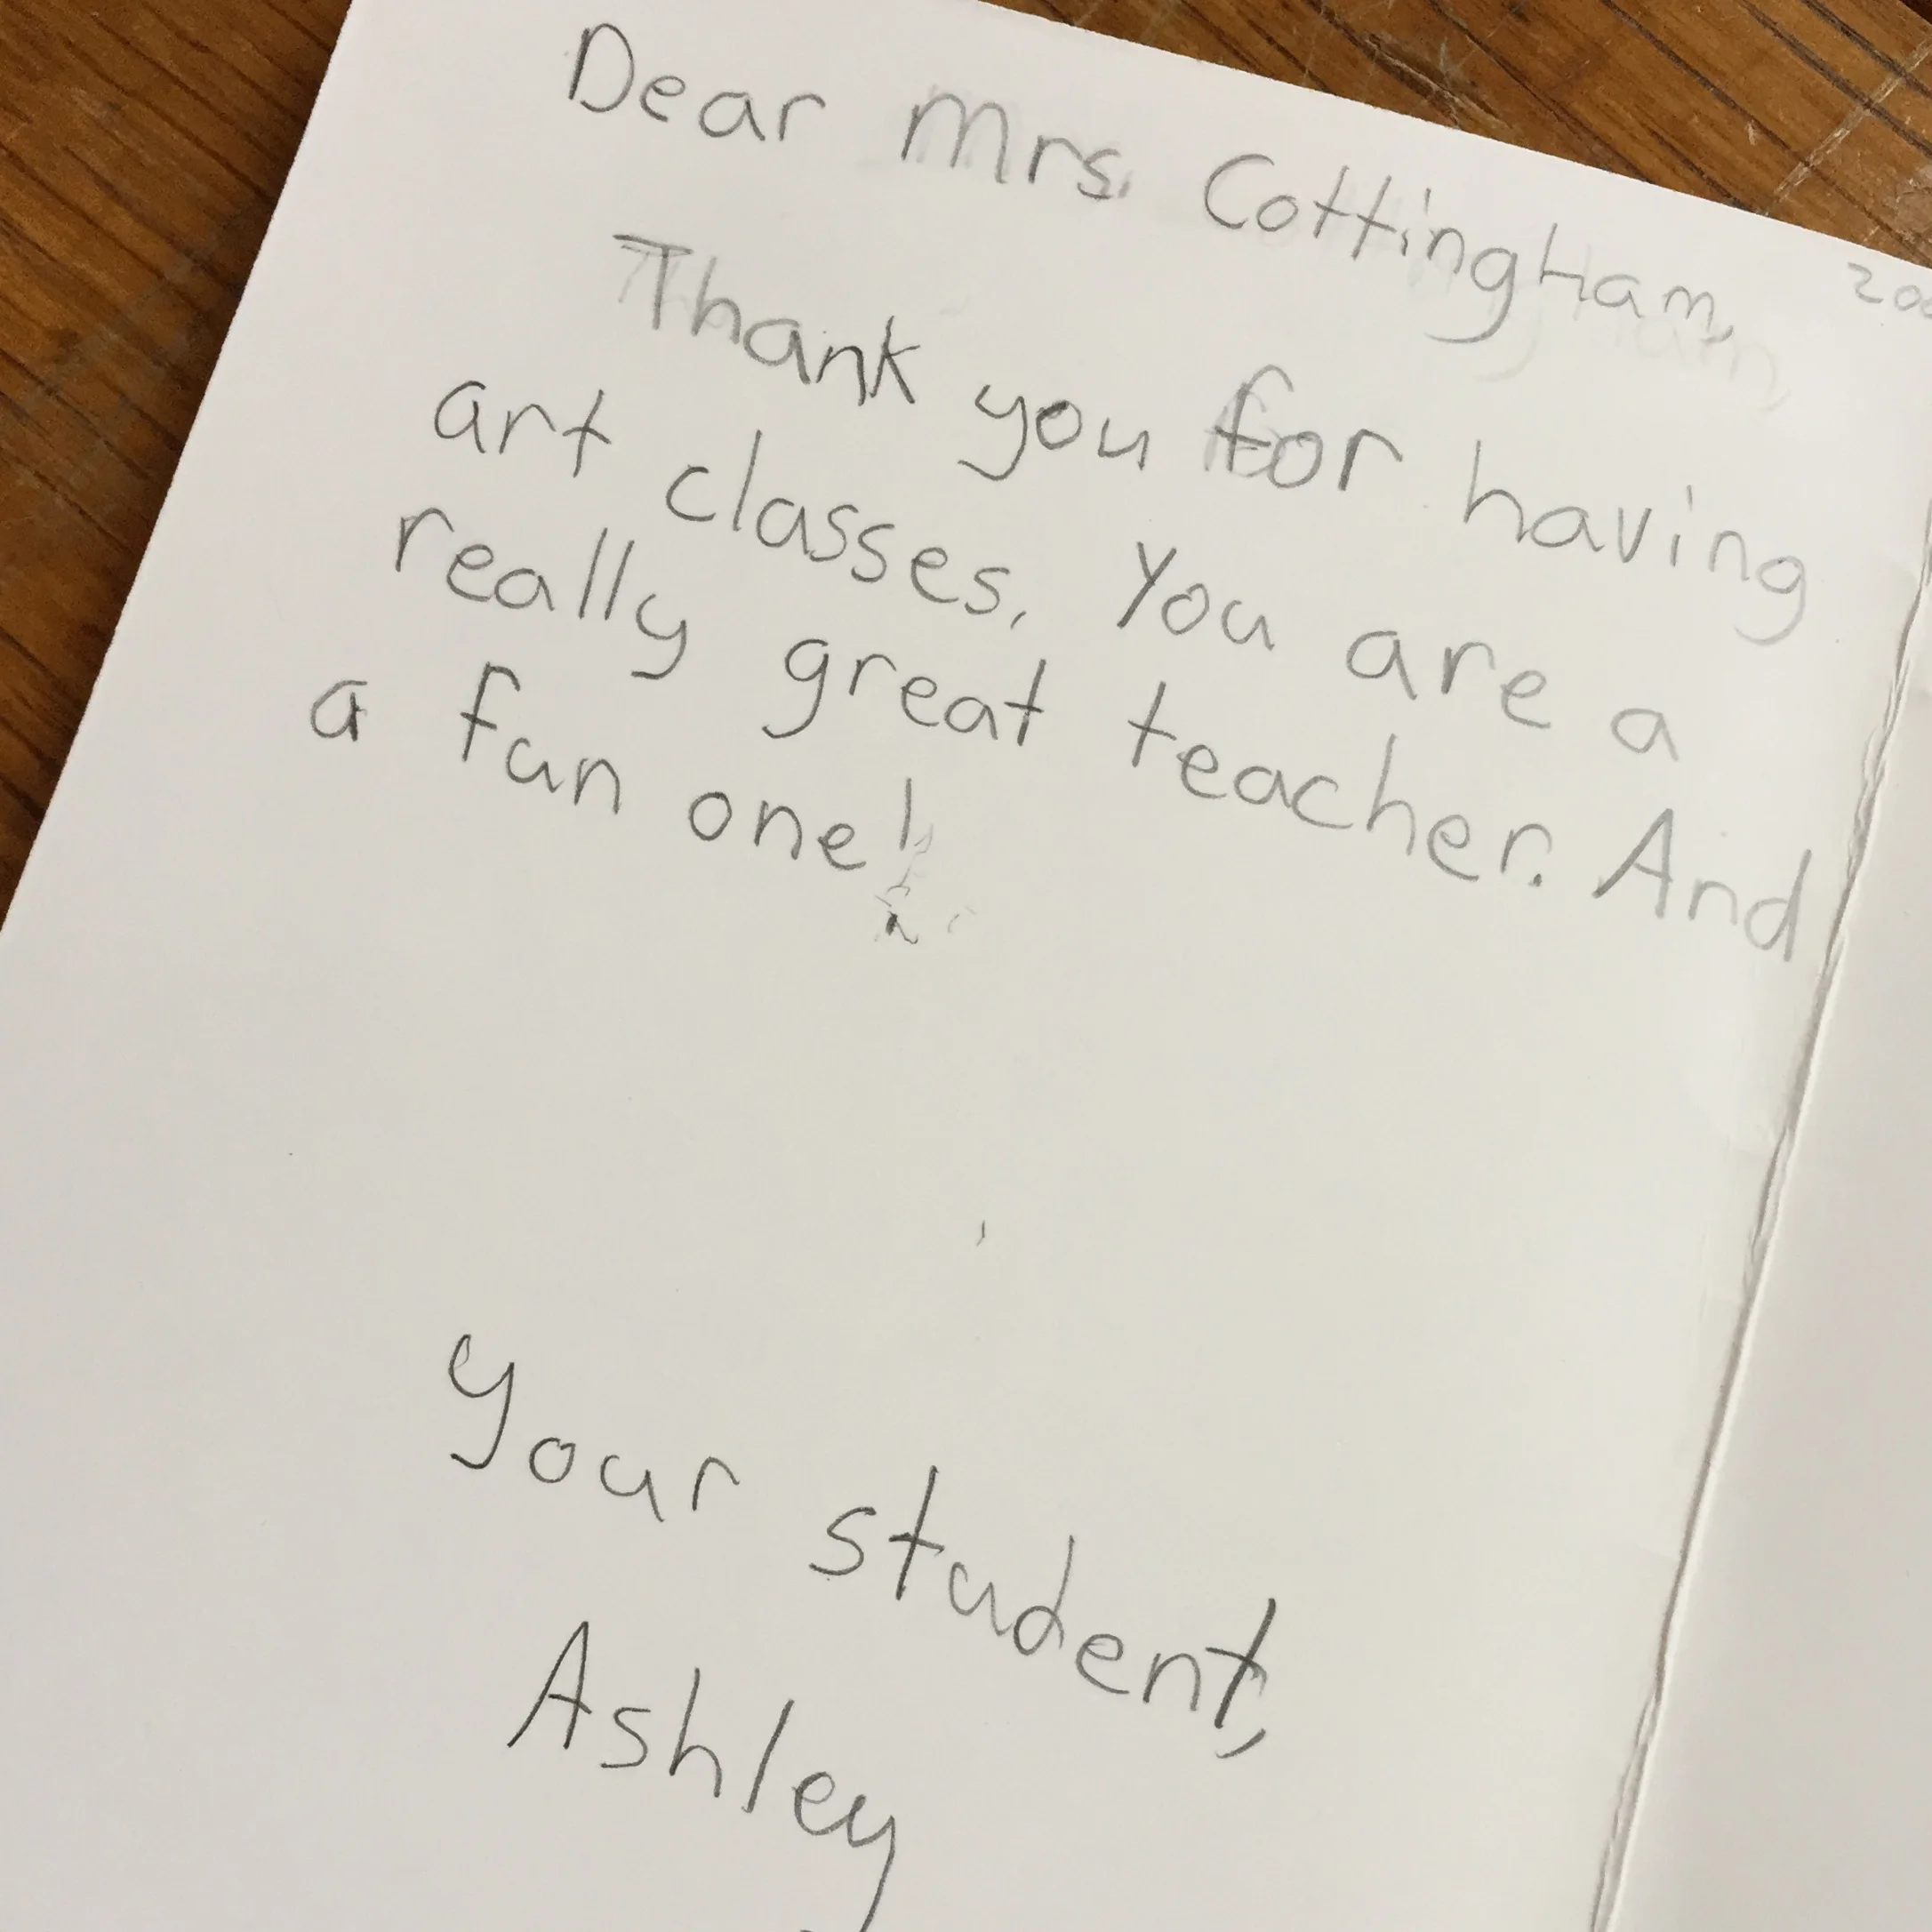 Dear Mrs. CottingHam,
Thank you for having
art classes. You are a
really great teacher. And
a fun one!
Your student,
Ashley